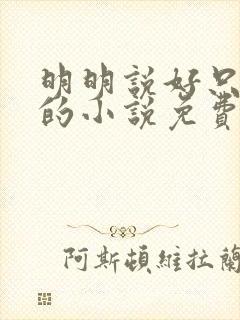 明明説好只
的小説免費
阿斯頓維拉蘭